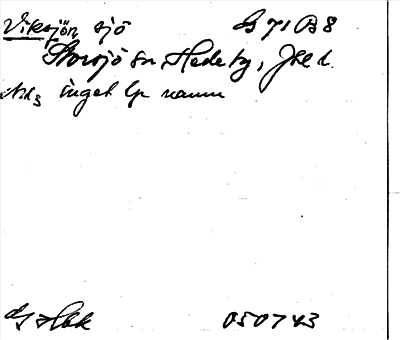 Viksjön sjö B 71 B 8
Storsjö sn, Hede tg, Jtl l.
inget lp namn
050743